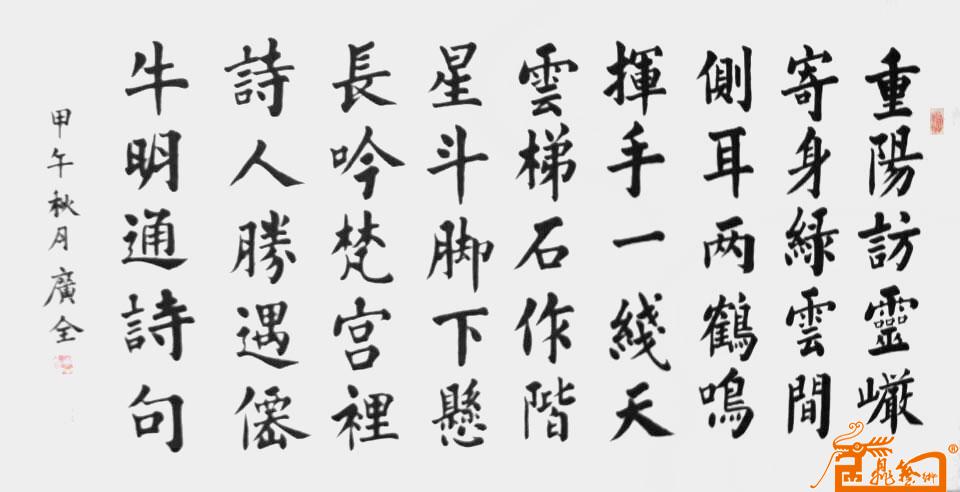 重陽訪靈巌
寄身緑雲間
側耳两鶴鳴
揮手一綫天
雲梯石作階
星斗脚下懸
長吟梵宫裡
詩人勝遇僊
牛明通詩句
甲午秋月廣全